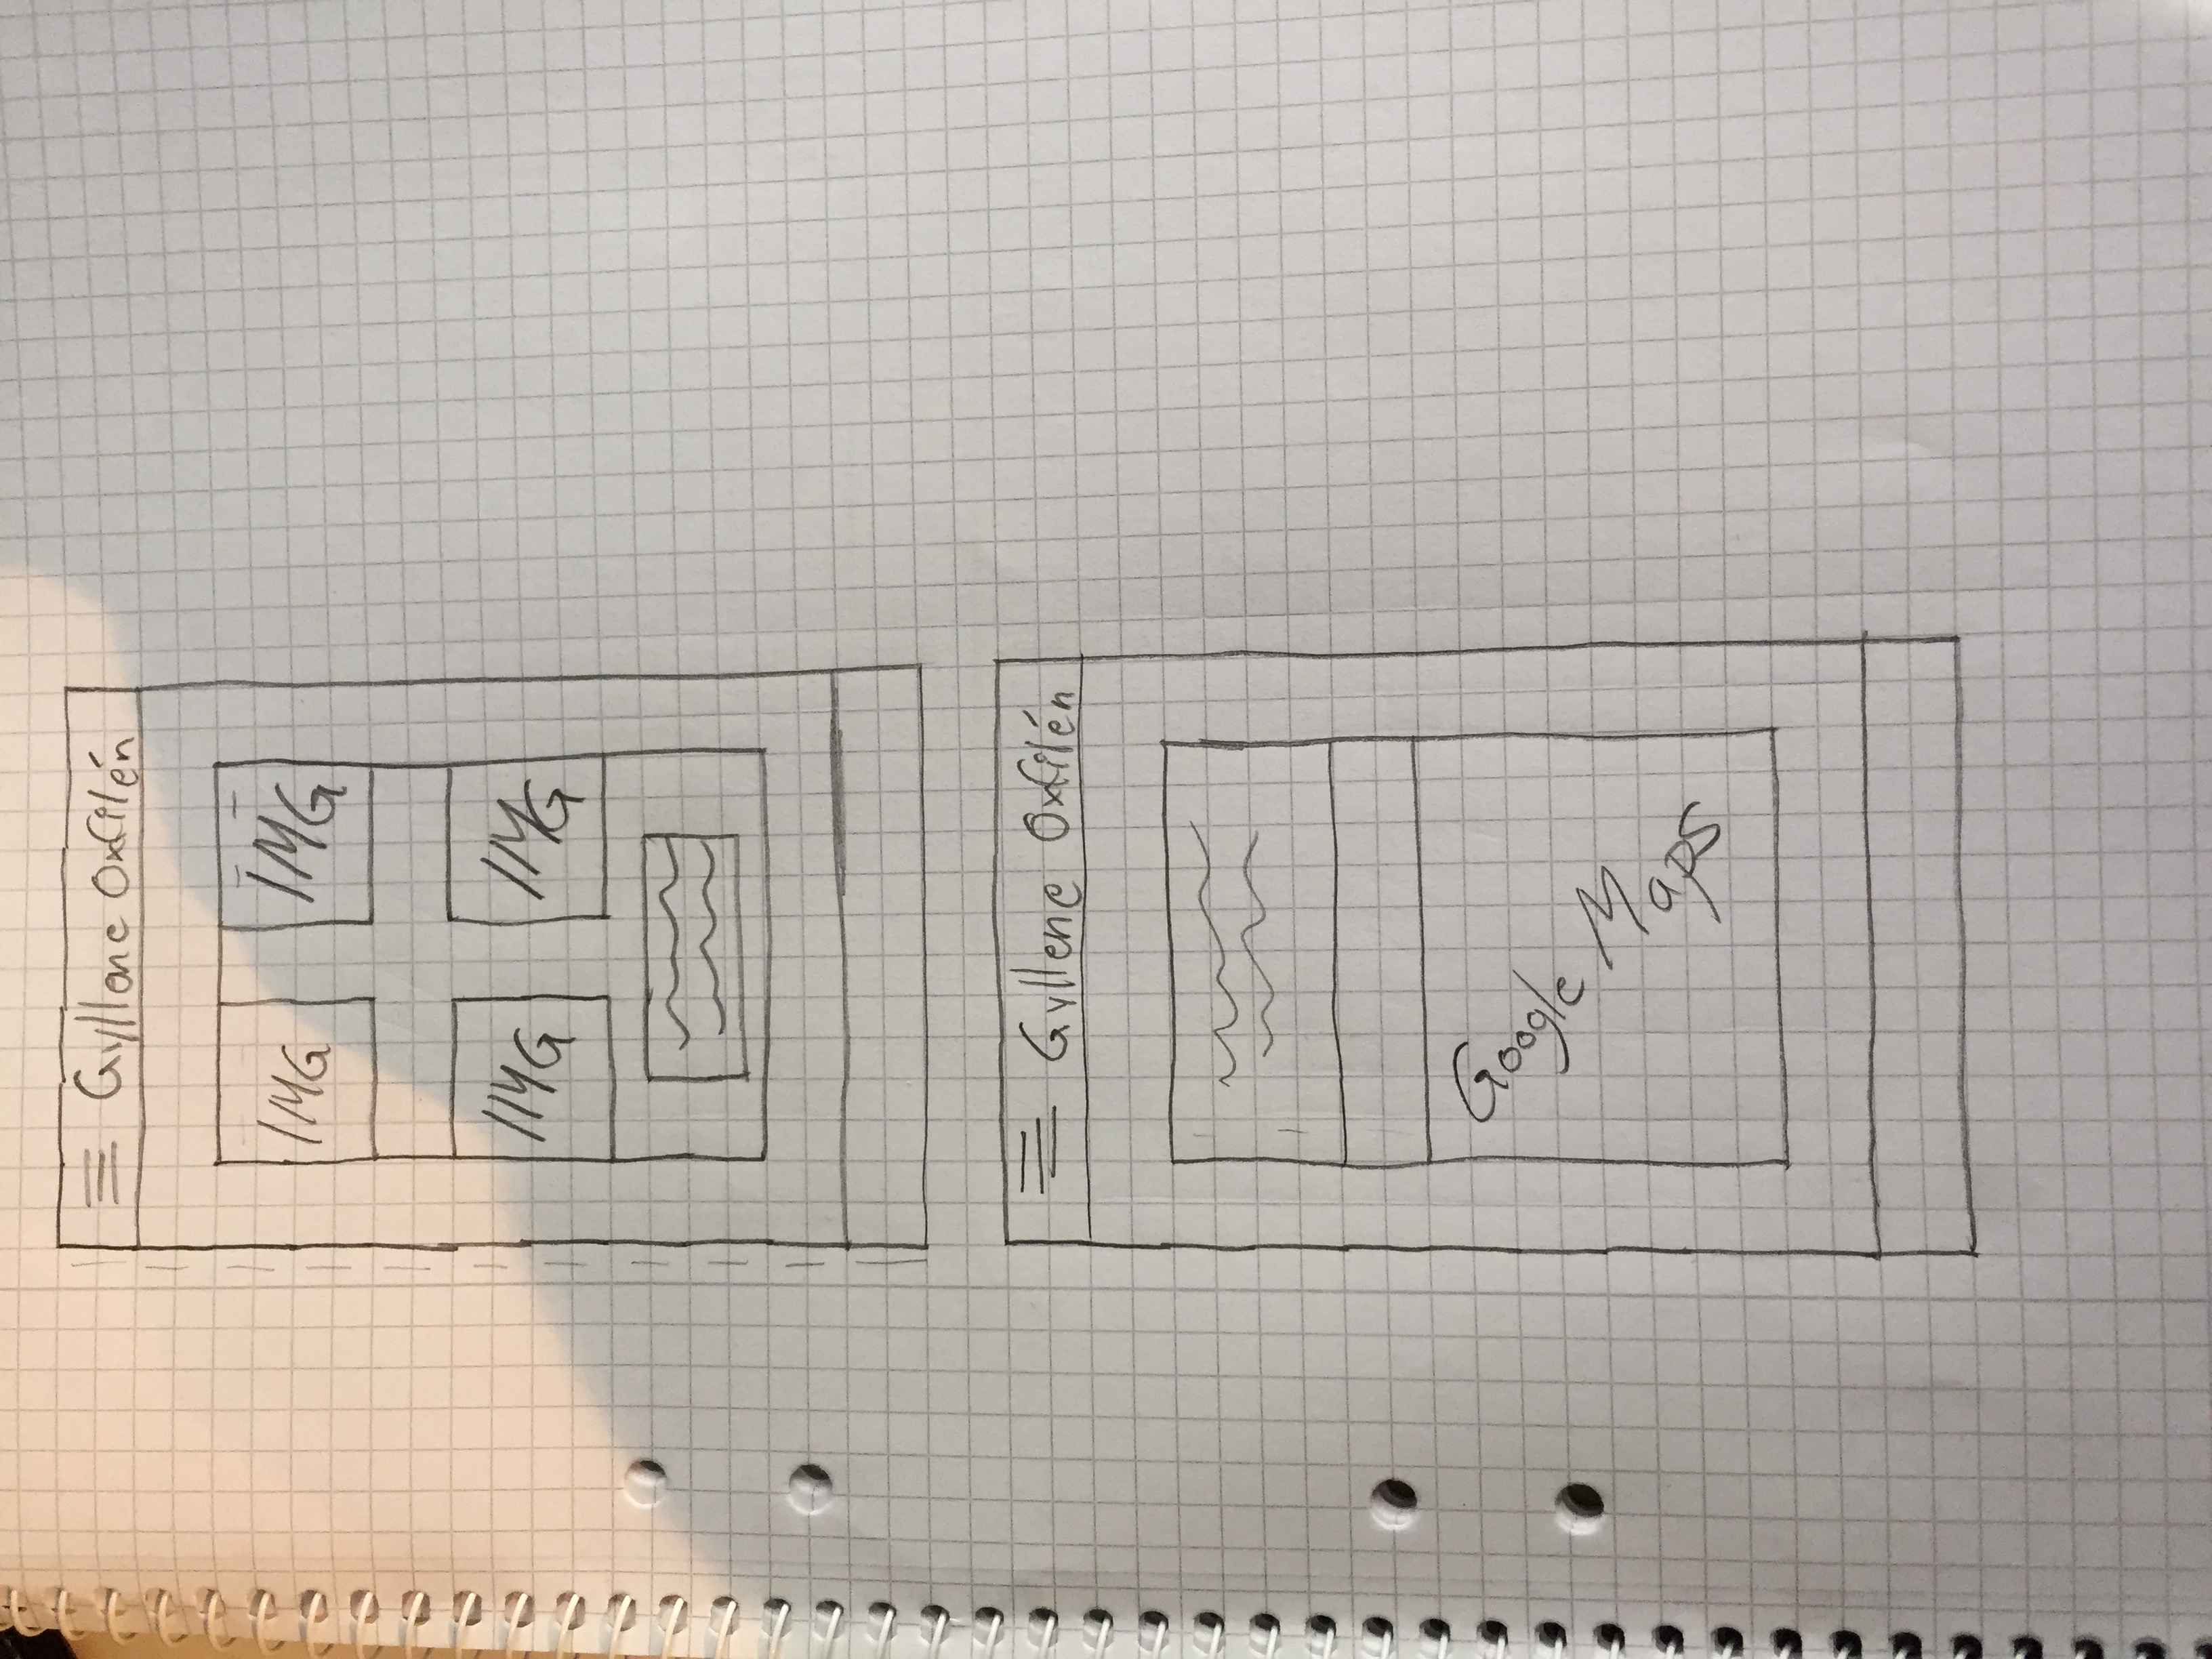 Gyllene Oxfilén
IMG IMG
IMG IMG
Gyllene Oxfilén
Google Maps